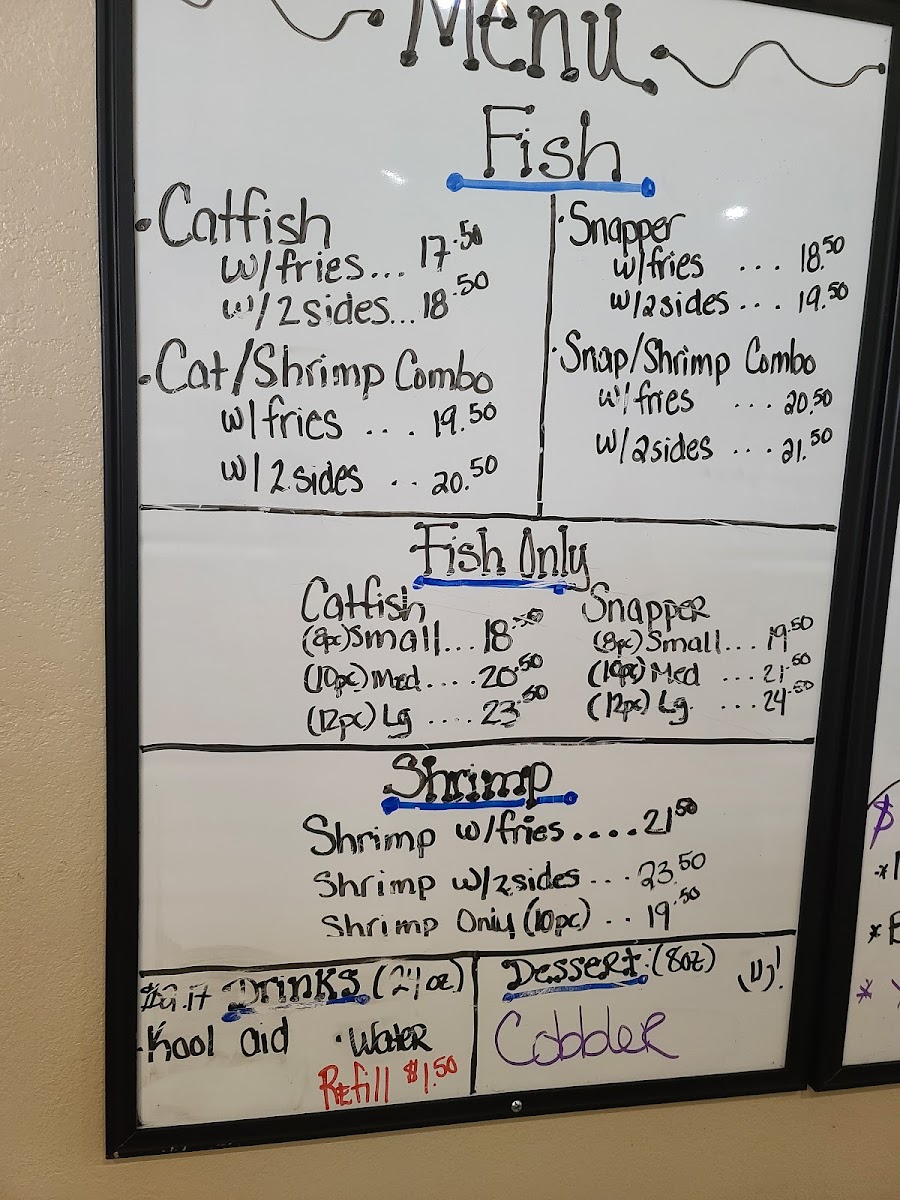 Menu
Fish
• Catfish
w/fries... 17.50
w/2 sides... 18.50
• Cat/Shrimp Combo
w/fries ... 19.50
w/2 sides .. 20.50
• Snapper
w/fries ... 18.50
w/2 sides ... 19.50
• Snap/Shrimp Combo
w/fries ... 20.50
w/2 sides ... 21.50
Fish Only
Catfish
(8pc) Small... 18.50
(10pc) Med .... 20.50
(12pc) Lg .... 23.50
Snapper
(8pc) Small... 19.50
(10pc) Med ... 21.50
(12pc) Lg. ... 24.50
Shrimp
Shrimp w/fries .... 21.50
Shrimp w/2 sides ... 23.50
Shrimp Only (10pc) .. 19.50
Drinks (24oz)
• Kool aid • Water
Refill $1.50
Dessert: (8oz)
Cobbler
$
*
*
*